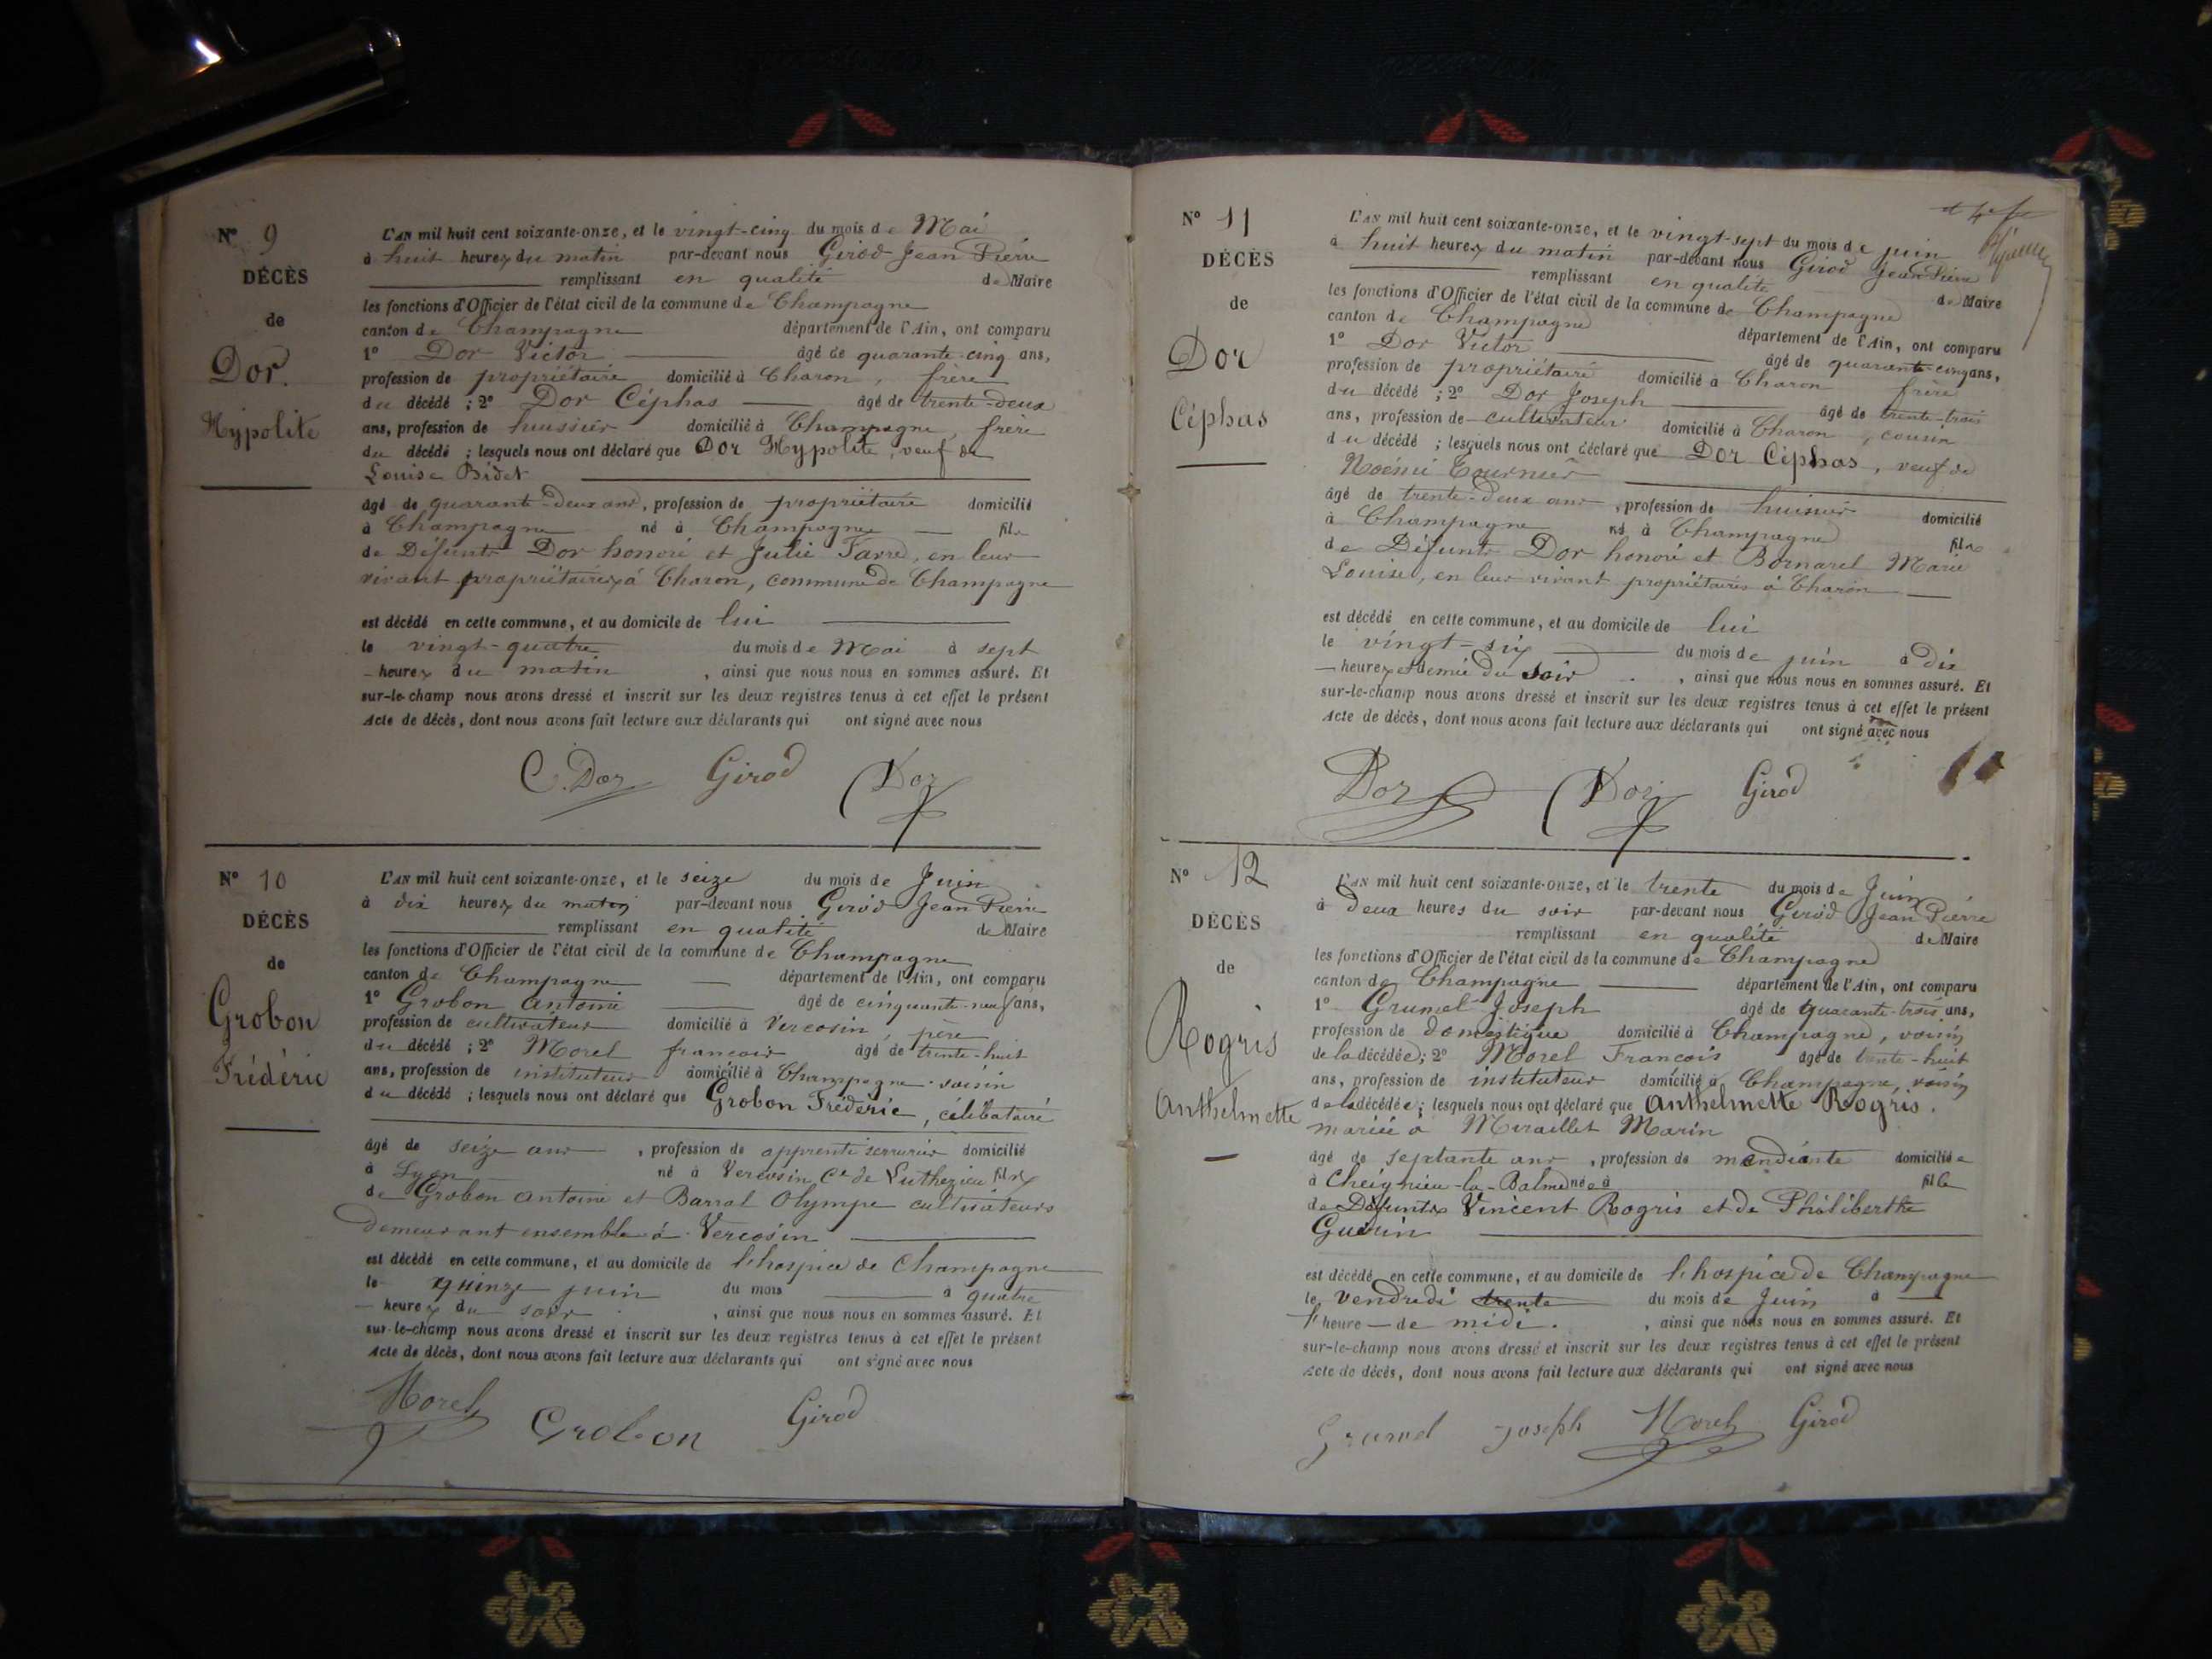 N° 9
DÉCÈS
de
Dor.
Hypolite
L'AN mil huit cent soixante-onze, et le vingt-cinq du mois de Mai
à huit heures du matin par-devant nous Girod Jean Pierre
remplissant en qualité de Maire
les fonctions d'Officier de l'état civil de la commune de Champagne
canton de Champagne département de l'Ain, ont comparu
1° Dor Victor âgé de quarante-cinq ans,
profession de propriétaire domicilié à Charon, frère
du décédé ; 2° Dor Céphas âgé de trente-deux
ans, profession de huissier domicilié à Champagne, frère
du décédé ; lesquels nous ont déclaré que Dor Hypolite, veuf de
Louise Bidet
âgé de quarante-deux ans, profession de propriétaire domicilié
à Champagne né à Champagne fils
de Défunts Dor honoré et Julie Favre, en leur
vivant propriétaires à Charon, commune de Champagne
est décédé en cette commune, et au domicile de lui
le vingt-quatre du mois de Mai à sept
heures du matin, ainsi que nous nous en sommes assuré. Et
sur-le-champ nous avons dressé et inscrit sur les deux registres tenus à cet effet le présent
Acte de décès, dont nous avons fait lecture aux déclarants qui ont signé avec nous
C. Dor Girod Dor
N° 10
DÉCÈS
de
Grobon
Frédéric
L'AN mil huit cent soixante-onze, et le seize du mois de Juin
à dix heures du matin par-devant nous Girod Jean Pierre
remplissant en qualité de Maire
les fonctions d'Officier de l'état civil de la commune de Champagne
canton de Champagne département de l'Ain, ont comparu
1° Grobon Antoine âgé de cinquante-neuf ans,
profession de cultivateur domicilié à Vercosin, père
du décédé ; 2° Morel françois âgé de trente-huit
ans, profession de instituteur domicilié à Champagne voisin
du décédé ; lesquels nous ont déclaré que Grobon Frédéric, célibataire
âgé de seize ans, profession de apprenti serrurier domicilié
à Lyon né à Vercosin, Cne de Luthezieu fils
de Grobon Antoine et Barral Olympe cultivateurs
demeurant ensemble à Vercosin
est décédé en cette commune, et au domicile de l'hospice de Champagne
le quinze juin du mois à quatre
heures du soir, ainsi que nous nous en sommes assuré. Et
sur-le-champ nous avons dressé et inscrit sur les deux registres tenus à cet effet le présent
Acte de décès, dont nous avons fait lecture aux déclarants qui ont signé avec nous
Morel Grobon Girod
N° 11
DÉCÈS
de
Dor
Céphas
L'AN mil huit cent soixante-onze, et le vingt-sept du mois de juin
à huit heures du matin par-devant nous Girod Jean Pierre
remplissant en qualité de Maire
les fonctions d'Officier de l'état civil de la commune de Champagne
canton de Champagne département de l'Ain, ont comparu
1° Dor Victor âgé de quarante-cinq ans,
profession de propriétaire domicilié à Charon frère
du décédé ; 2° Dor Joseph âgé de trente-trois
ans, profession de cultivateur domicilié à Charon, cousin
du décédé ; lesquels nous ont déclaré que Dor Céphas, veuf de
Noémi Tournier
âgé de trente-deux ans, profession de huissier domicilié
à Champagne né à Champagne fils
de Défunts Dor honoré et Bornarel Marie
Louise, en leur vivant propriétaires à Charon
est décédé en cette commune, et au domicile de lui
le vingt-six du mois de juin à dix
heures et demie du soir, ainsi que nous nous en sommes assuré. Et
sur-le-champ nous avons dressé et inscrit sur les deux registres tenus à cet effet le présent
Acte de décès, dont nous avons fait lecture aux déclarants qui ont signé avec nous
Dor Dor Girod
N° 12
DÉCÈS
de
Rogris
Anthelmette
L'AN mil huit cent soixante-onze, et le trente du mois de Juin
à deux heures du soir par-devant nous Girod Jean Pierre
remplissant en qualité de Maire
les fonctions d'Officier de l'état civil de la commune de Champagne
canton de Champagne département de l'Ain, ont comparu
1° Grumel Joseph âgé de quarante-trois ans,
profession de domestique domicilié à Champagne, voisin
de la décédée ; 2° Morel François âgé de trente-huit
ans, profession de instituteur domicilié à Champagne, voisin
de la décédée ; lesquels nous ont déclaré que Anthelmette Rogris.
mariée à Miraillet Marin
âgé de septante ans, profession de mendiante domiciliée
à Cheignieu-la-Balme née à fille
de Défunts Vincent Rogris et de Philiberthe
Guérin
est décédé en cette commune, et au domicile de l'hospice de Champagne
le vendredi trente du mois de Juin à
l'heure de midi., ainsi que nous nous en sommes assuré. Et
sur-le-champ nous avons dressé et inscrit sur les deux registres tenus à cet effet le présent
Acte de décès, dont nous avons fait lecture aux déclarants qui ont signé avec nous
Grumel Joseph Morel Girod